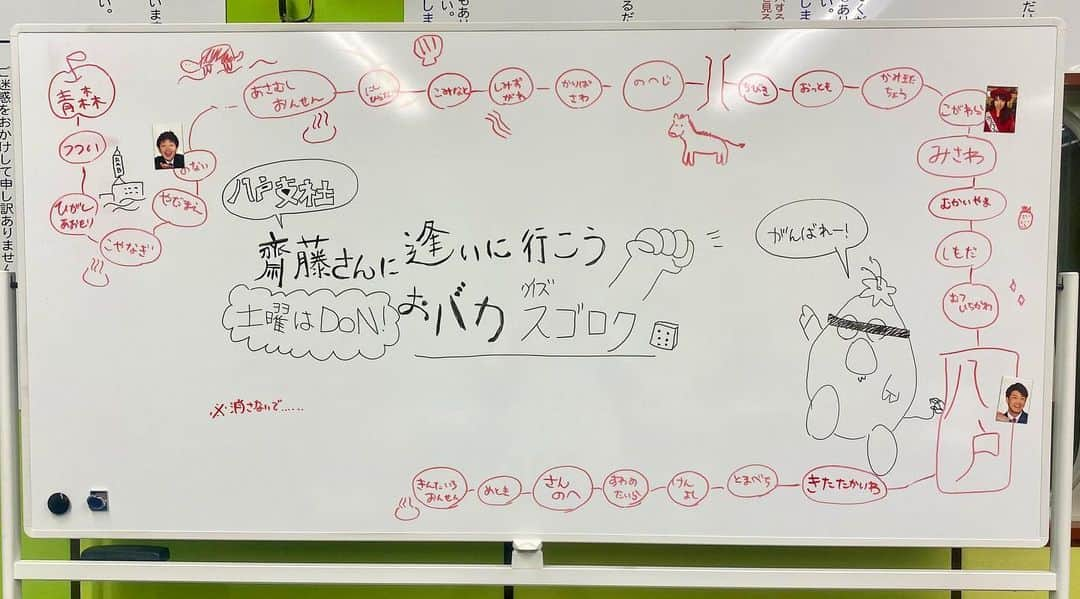 青森
つつい
ひがし
あおもり
こやなぎ
やだまえ
のない
あさむし
おんせん
にし
ひらない
こみなと
しみず
がわ
かりば
さわ
のへじ
ちびき
おっとも
かみきた
ちょう
こがわら
みさわ
むかいやま
しもだ
むつ
いちかわ
八戸
きたたかいわ
とまべち
けん
よし
すわの
たいら
さん
のへ
めとき
きんたいち
おんせん
八戸支社
齋藤さんに逢いに行こう
土曜はDoN!
おバカ
クイズ
スゴロク
がんばれー!
※消さないで……
ご迷惑をおかけして申し訳ありません